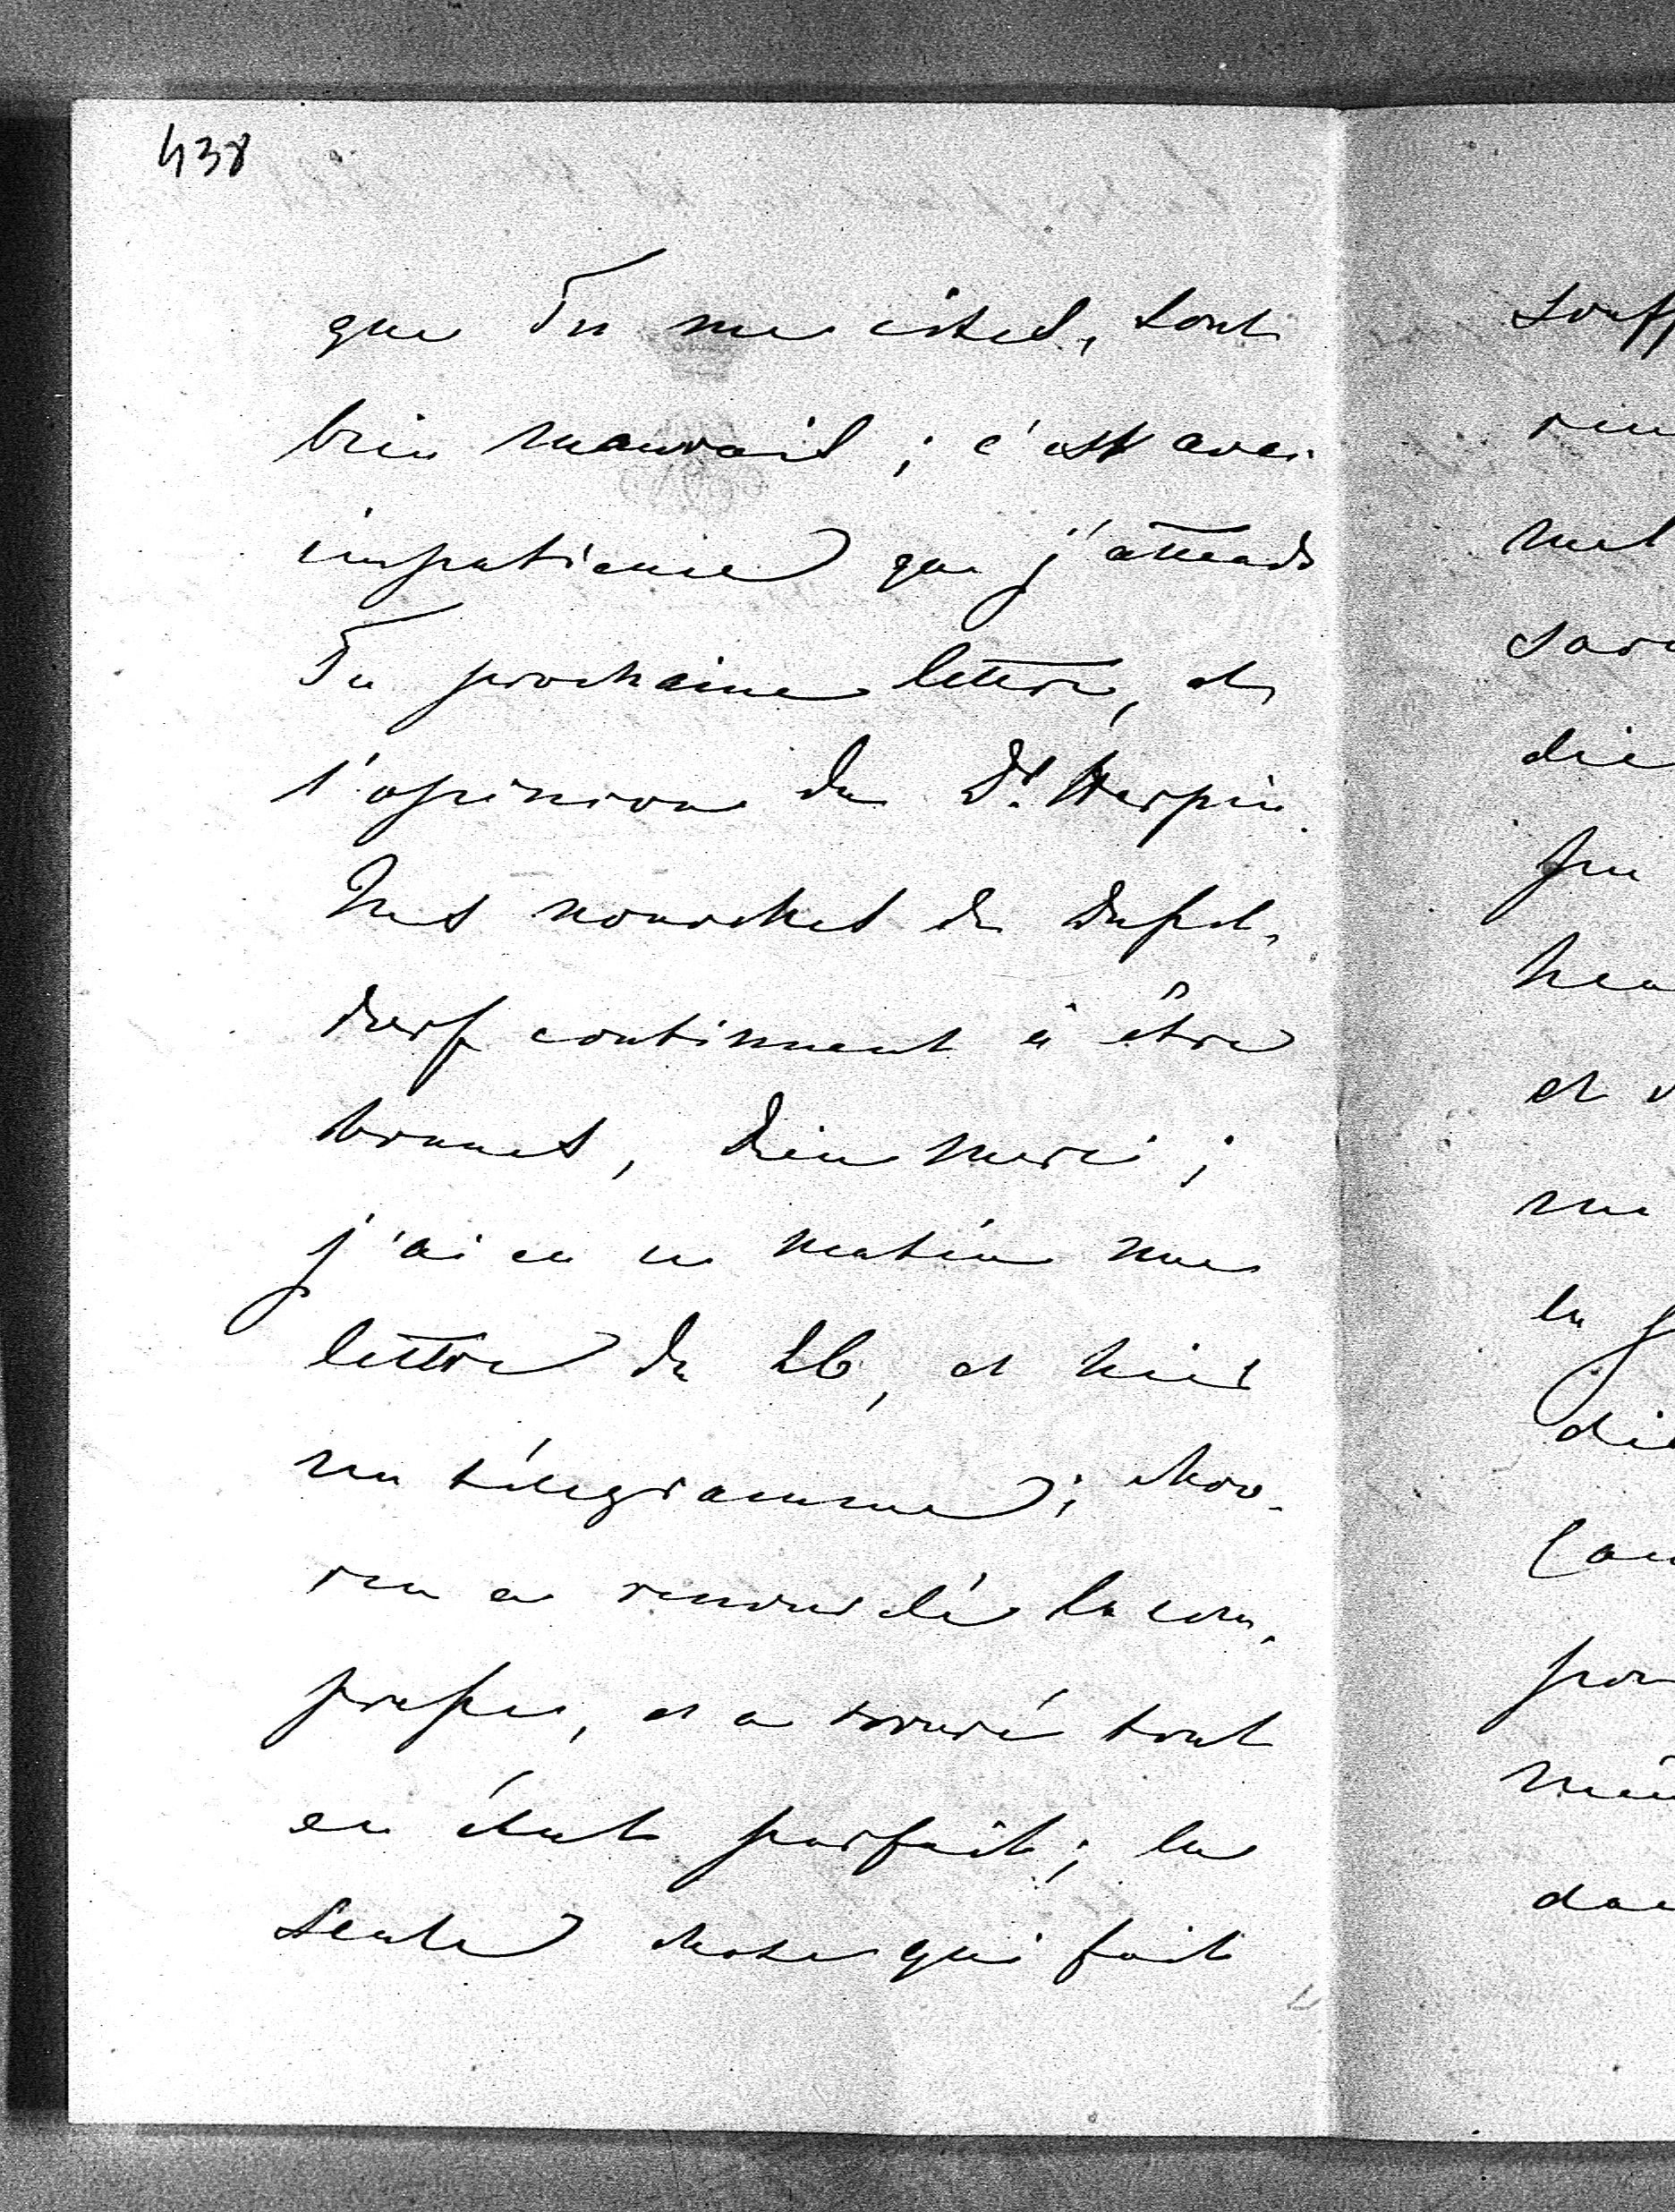 438
que Tu me cites, sont
bien mauvais ; c'est avec
impatience que j'attends
Ta prochaine lettre, et
l'opinion du Dr. Herpin.
Les nouvelles de Dussel-
dorf continuent à être
bonnes, Dieu merci ;
j'ai eu ce matin une
lettre du 26, et hier
un télégramme ;
a renouvelé la com-
presse, et a trouvé tout
en état parfait ; la
seule chose qui fait
souff
rien
met
die
hea
et v
me
la g
die
pou